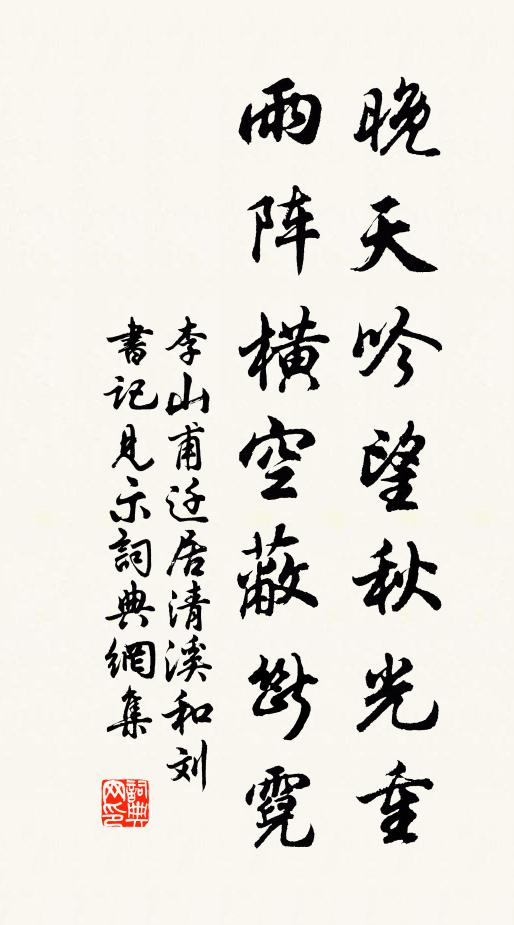 晚天吟望秋光重
雨阵横空蔽断霓
李山甫迁居清溪和刘
書记見示詞典網集
詞典網印